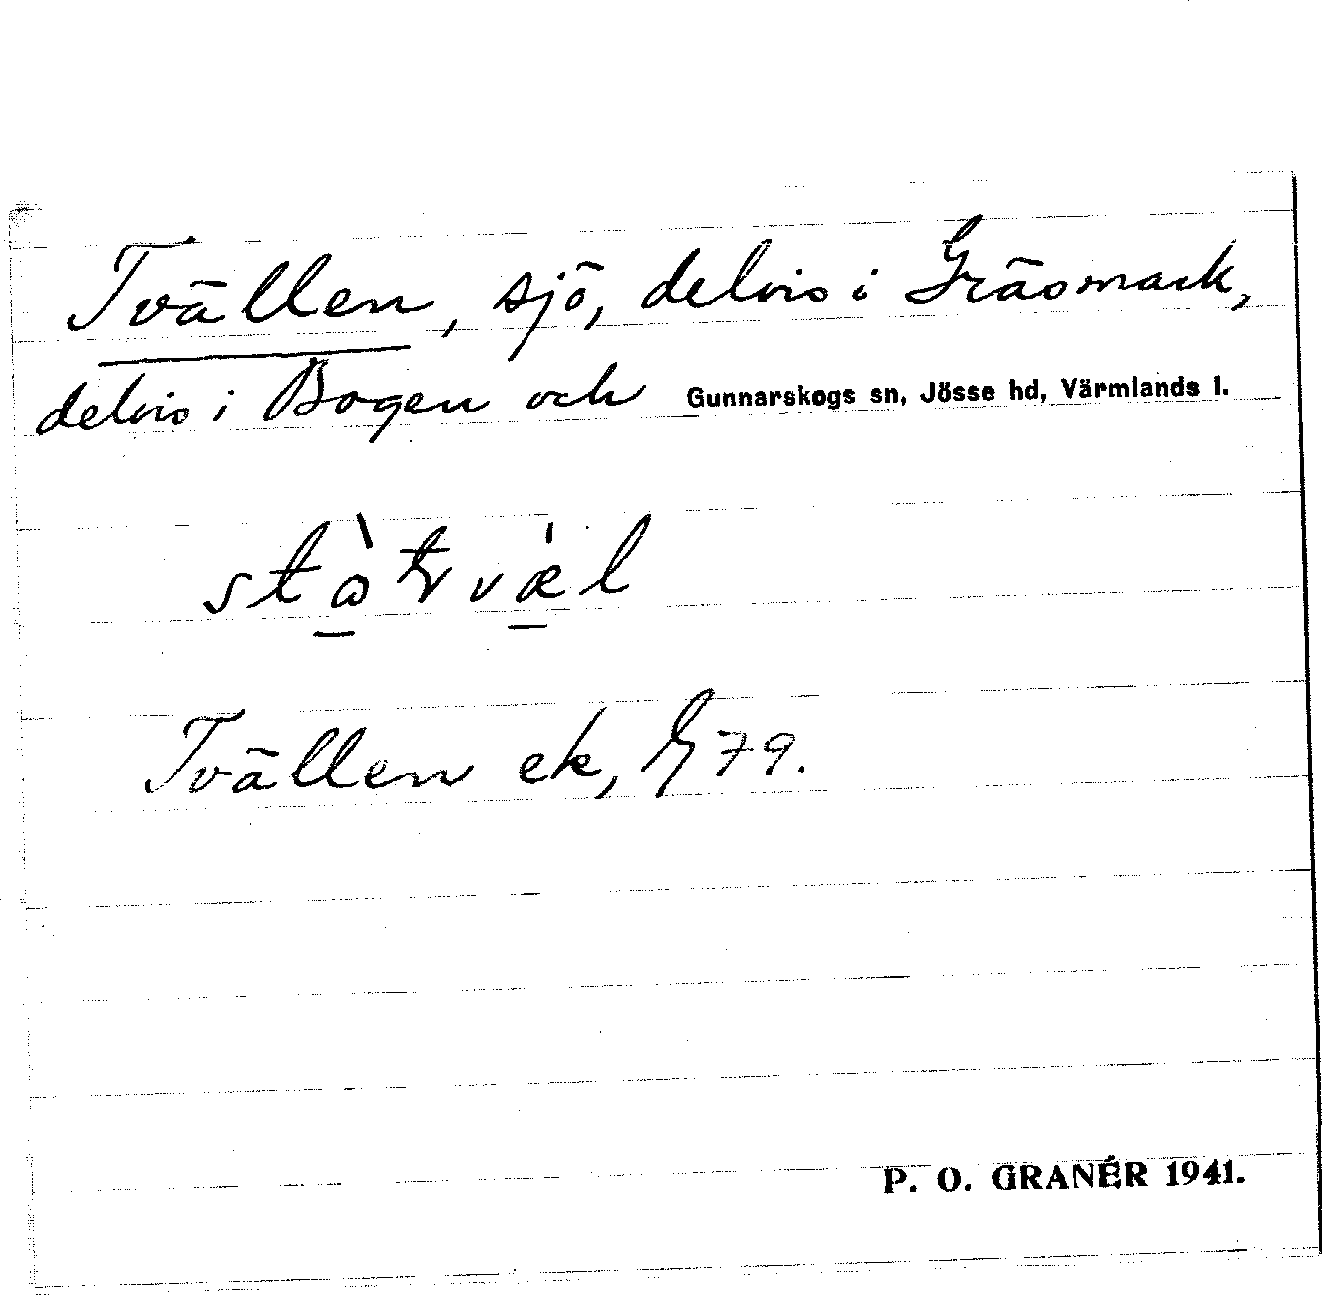 Tvällen, sjö, delvis i Gräsmark,
delvis i Bogen och Gunnarskogs sn, Jösse hd, Värmlands l.
Tvällen ek, G 79.
P. O. GRANÉR 1941.